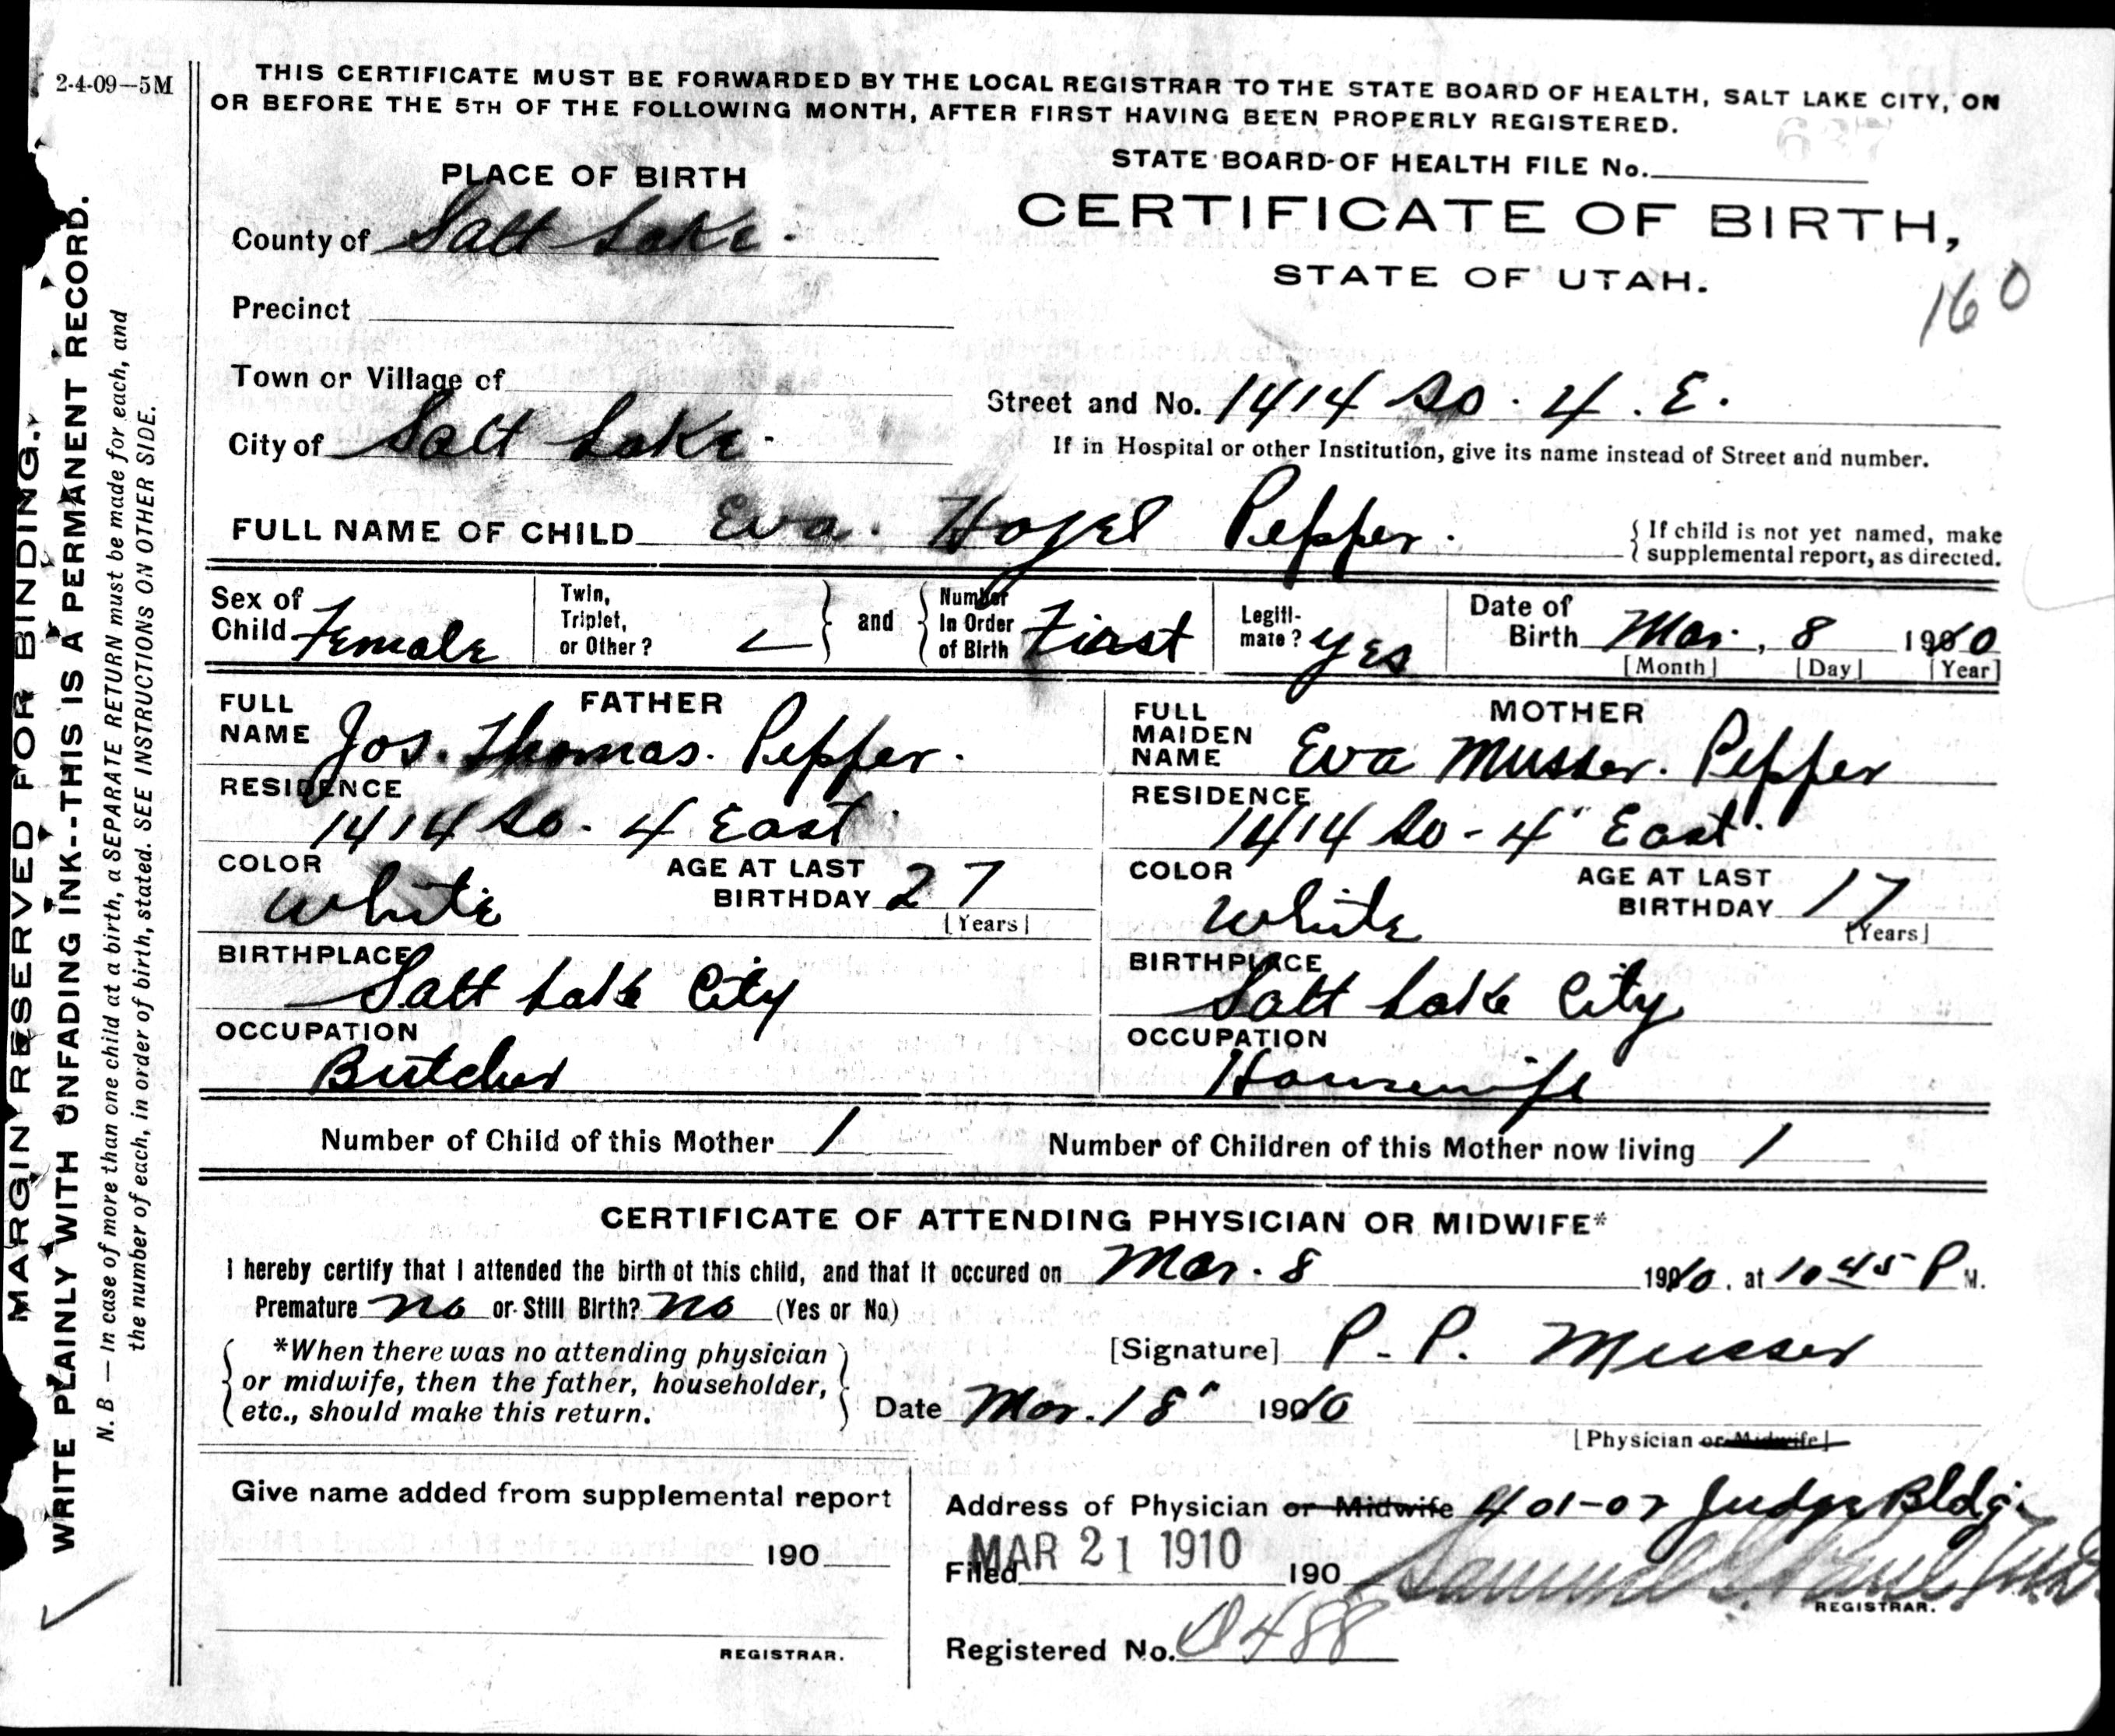 2-4-09—5M
THIS CERTIFICATE MUST BE FORWARDED BY THE LOCAL REGISTRAR TO THE STATE BOARD OF HEALTH, SALT LAKE CITY, ON
OR BEFORE THE 5TH OF THE FOLLOWING MONTH, AFTER FIRST HAVING BEEN PROPERLY REGISTERED.
STATE BOARD OF HEALTH FILE No.
PLACE OF BIRTH
CERTIFICATE OF BIRTH,
STATE OF UTAH.
160
County of Salt Lake.
Precinct
Town or Village of
Street and No. 1414 So. 4. E.
City of Salt Lake.
If in Hospital or other Institution, give its name instead of Street and number.
FULL NAME OF CHILD Eva. Hazel Pepper.
{ If child is not yet named, make
supplemental report, as directed.
Sex of Child Female
Twin, Triplet, or Other? } and { Number In Order of Birth First
Legiti-mate? Yes
Date of Birth Mar., 8 1910
[Month] [Day] [Year]
FATHER
FULL NAME Jos. Thomas. Pepper.
RESIDENCE
1414 So. 4 East
COLOR
White
AGE AT LAST BIRTHDAY 27
[Years]
BIRTHPLACE
Salt Lake City
OCCUPATION
Butcher
MOTHER
FULL MAIDEN NAME Eva Musser. Pepper
RESIDENCE
1414 So - 4 East.
COLOR
White
AGE AT LAST BIRTHDAY 17
[Years]
BIRTHPLACE
Salt Lake City
OCCUPATION
Housewife
Number of Child of this Mother 1
Number of Children of this Mother now living 1
CERTIFICATE OF ATTENDING PHYSICIAN OR MIDWIFE*
I hereby certify that I attended the birth of this child, and that it occured on Mar. 8 1910, at 10 45 P M.
Premature No or Still Birth? No (Yes or No)
{ *When there was no attending physician
or midwife, then the father, householder,
etc., should make this return. }
[Signature] P. P. Musser
Date Mar. 18" 1910
[Physician or Midwife]
Give name added from supplemental report
190
REGISTRAR.
Address of Physician or Midwife 401-02 Judge Bldg.
Filed MAR 21 1910 190
REGISTRAR.
Registered No. 488
MARGIN RESERVED FOR BINDING.
WRITE PLAINLY WITH UNFADING INK--THIS IS A PERMANENT RECORD.
N. B — In case of more than one child at a birth, a SEPARATE RETURN must be made for each, and
the number of each, in order of birth, stated. SEE INSTRUCTIONS ON OTHER SIDE.